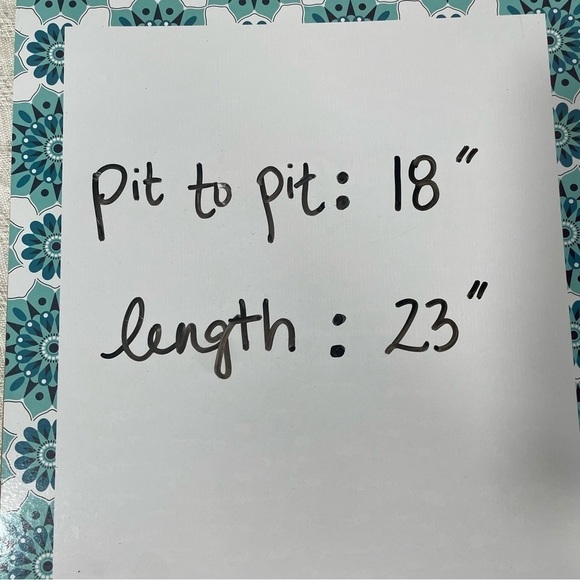 pit to pit: 18"
length: 23"